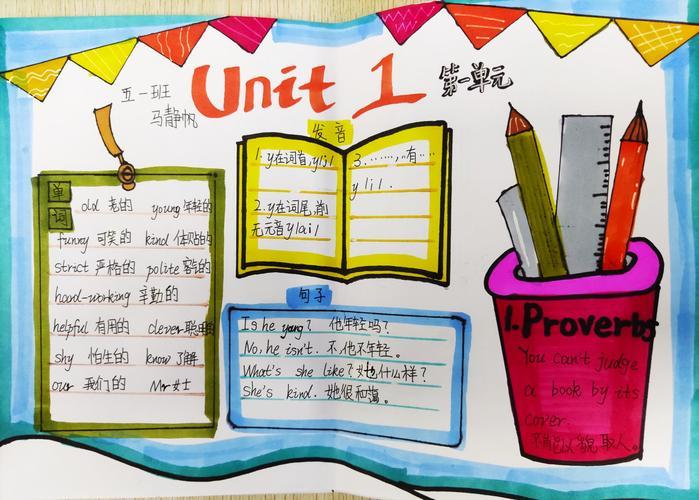 Unit 1
第一单元
五一班
马静帆
单词
old 老的 young 年轻的
funny 可笑的 kind 体贴的
strict 严格的 polite 客的
hard-working 辛勤的
helpful 有用的 clever 聪明的
shy 怕生的 know 了解
our 我们的 Mr 女士
发音
1. y在词首, y/j/
2. y在词尾,前
无元音 y/ai/
3. ……,有…
y /i/.
句子
Is he young? 他年轻吗?
No, he isn't. 不,他不年轻。
What's she like? 她什么样?
She's kind. 她很和蔼。
1. Proverbs
You can't judge
a book by its
cover.
不能以貌取人。